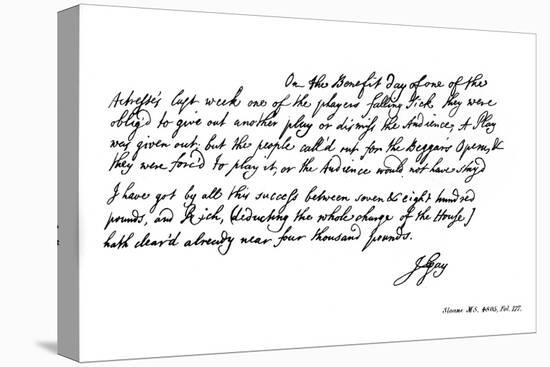 On the Benefit day of one of the
Actresse's last week one of the players falling sick they were
oblig'd to give out another play or dismiss the Audience, A Play
was given out, but the people call'd out for the Beggars Opera, &
they were forc'd to play it, or the Audience would not have stay'd
I have got by all this success between seven & eight hundred
pounds, and Rich, (deducting the whole charge of the House)
hath clear'd already near four thousand pounds.
J Gay
Sloane MS. 4805, Fol. 177.